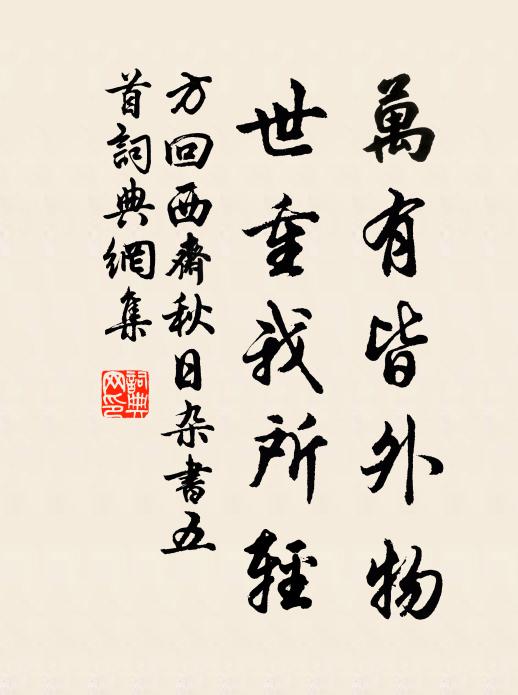 萬有皆外物
世重我所輕
方回西齋秋日杂書五
首詞典網集
詞典网印